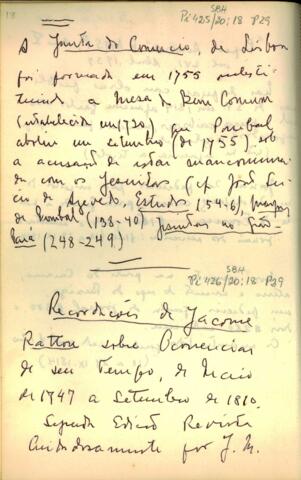 SBH
Pi 425/20:18 P29
A Junta do Comercio, de Lisboa
foi formada em 1755 substi-
tuindo a Mesa do Bem Comum
(estabelecida em 1720) que Pombal
abolira em setembro (de 1755), sob
a acusação de estar mancomuna-
da com os Jesuitas (cf José Lu-
cio de Azevedo, Estudos (54-6), Marquez
de Pombal (138-40) Jesuitas no Grão-
Pará (248-249)
SBH
Pi 426/20:18 P29
Recordações de Jacome
Ratton sobre Ocorrencias
de seu Tempo, de Maio
de 1747 a Setembro de 1810.
Segunda Edição Revista
Cuidadosamente por J. M.